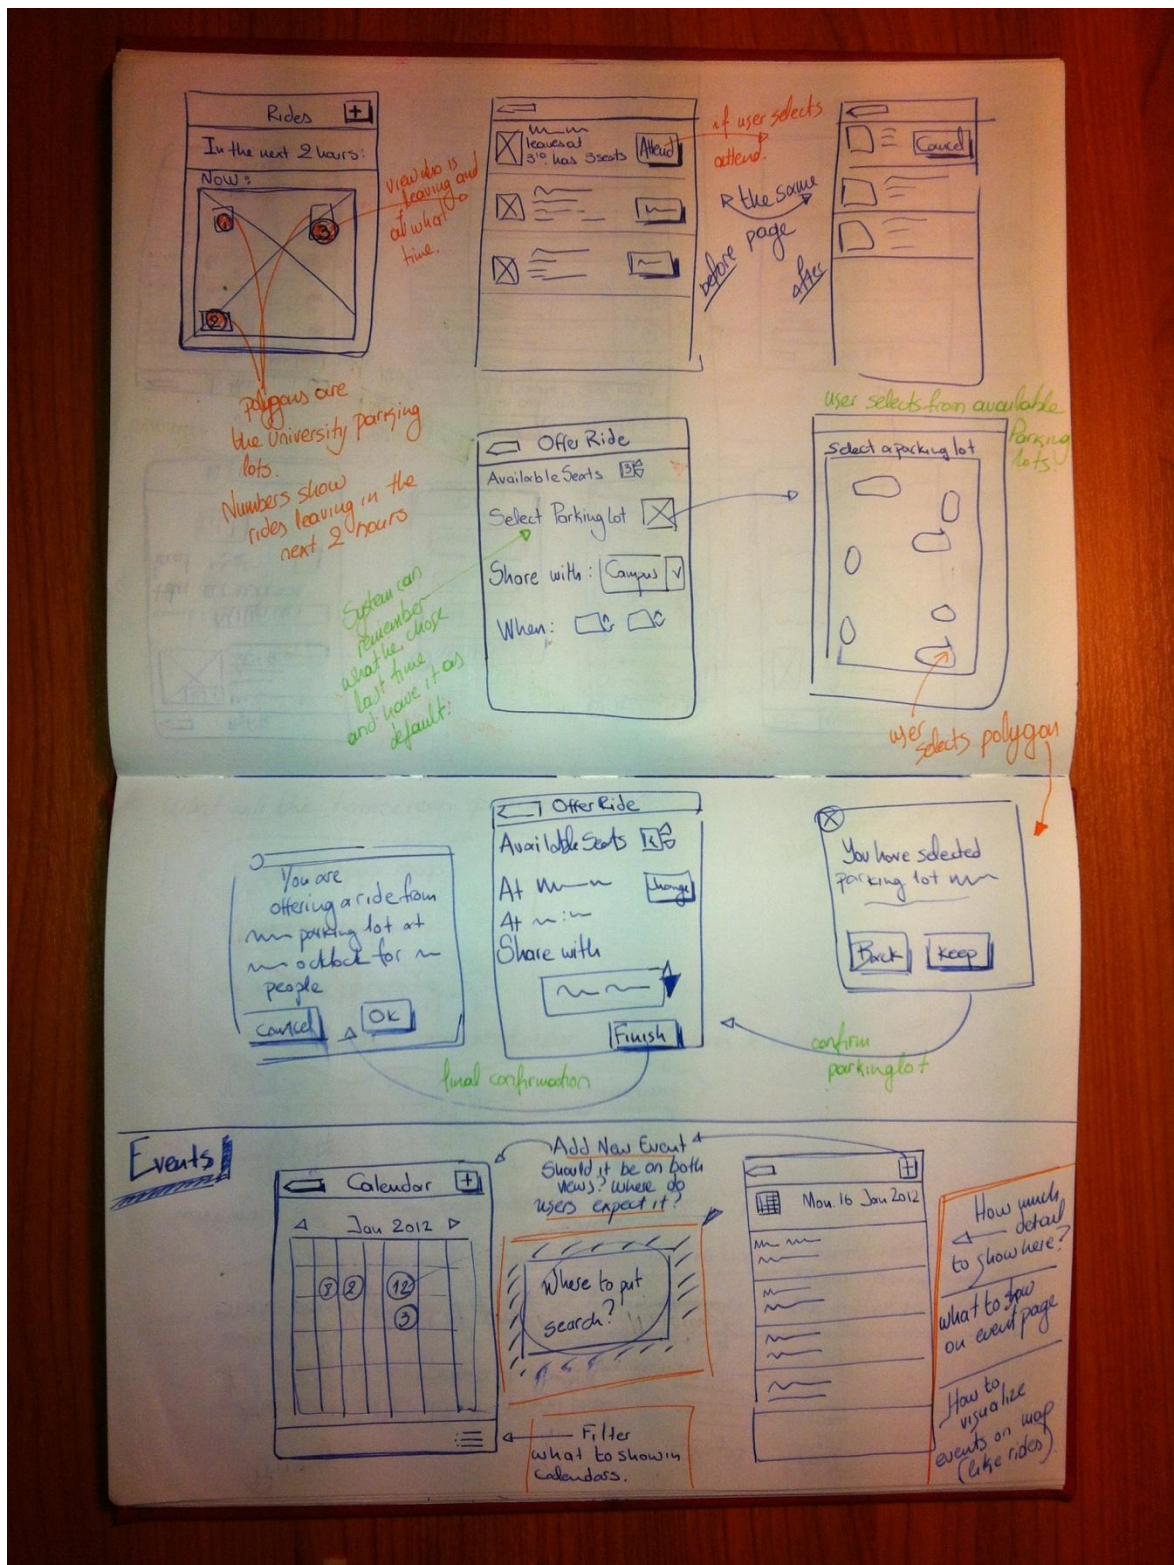 Rides +
In the next 2 hours:
Now:
3
2
view who is
leaving and
at what
time.
polygons are
the University parking
lots.
Numbers show
rides leaving in the
next 2 hours
leaves at
3¹⁰ has 3 seats
Attend
if user selects
attend.
the same
page
before
after
Cancel
Offer Ride
Available Seats 3
Select Parking lot
Share with: Campus v
When:
System can
remember
what he chose
last time
and have it as
default.
user selects from available
Parking
lots.
Select a parking lot
user
selects polygon
You are
offering a ride from
parking lot at
oclock for
people
Cancel
OK
final confirmation
Offer Ride
Available Seats
At
Change
At :
Share with
Finish
You have selected
parking lot
Back
Keep
confirm
parking lot
Events
Calendar +
Jan 2012
2 12
3
Add New Event
Should it be on both
views? Where do
users expect it?
Where to put
search?
Filter
what to show in
Calendars.
+
Mon. 16 Jan 2012
How much
detail
to show here?
what to show
on event page
How to
visualize
events on map
(like rides)